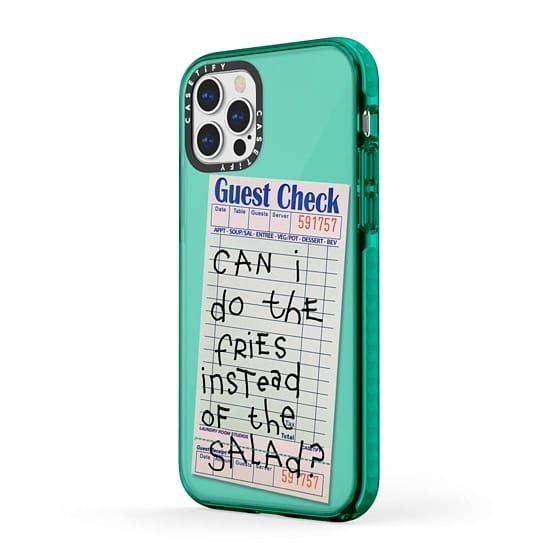 CASETiFY
CASETiFY
Guest Check
Date Table Guests Server 591757
APPT - SOUP/SAL - ENTREE - VEG/POT - DESSERT - BEV
CAN i
do thE
fRiES
insTead
OF the
Tax
Total
LAUNDRY ROOM STUDIOS CASETiFY
SALAd?
Guest Receipt
Date Guests Server 591757